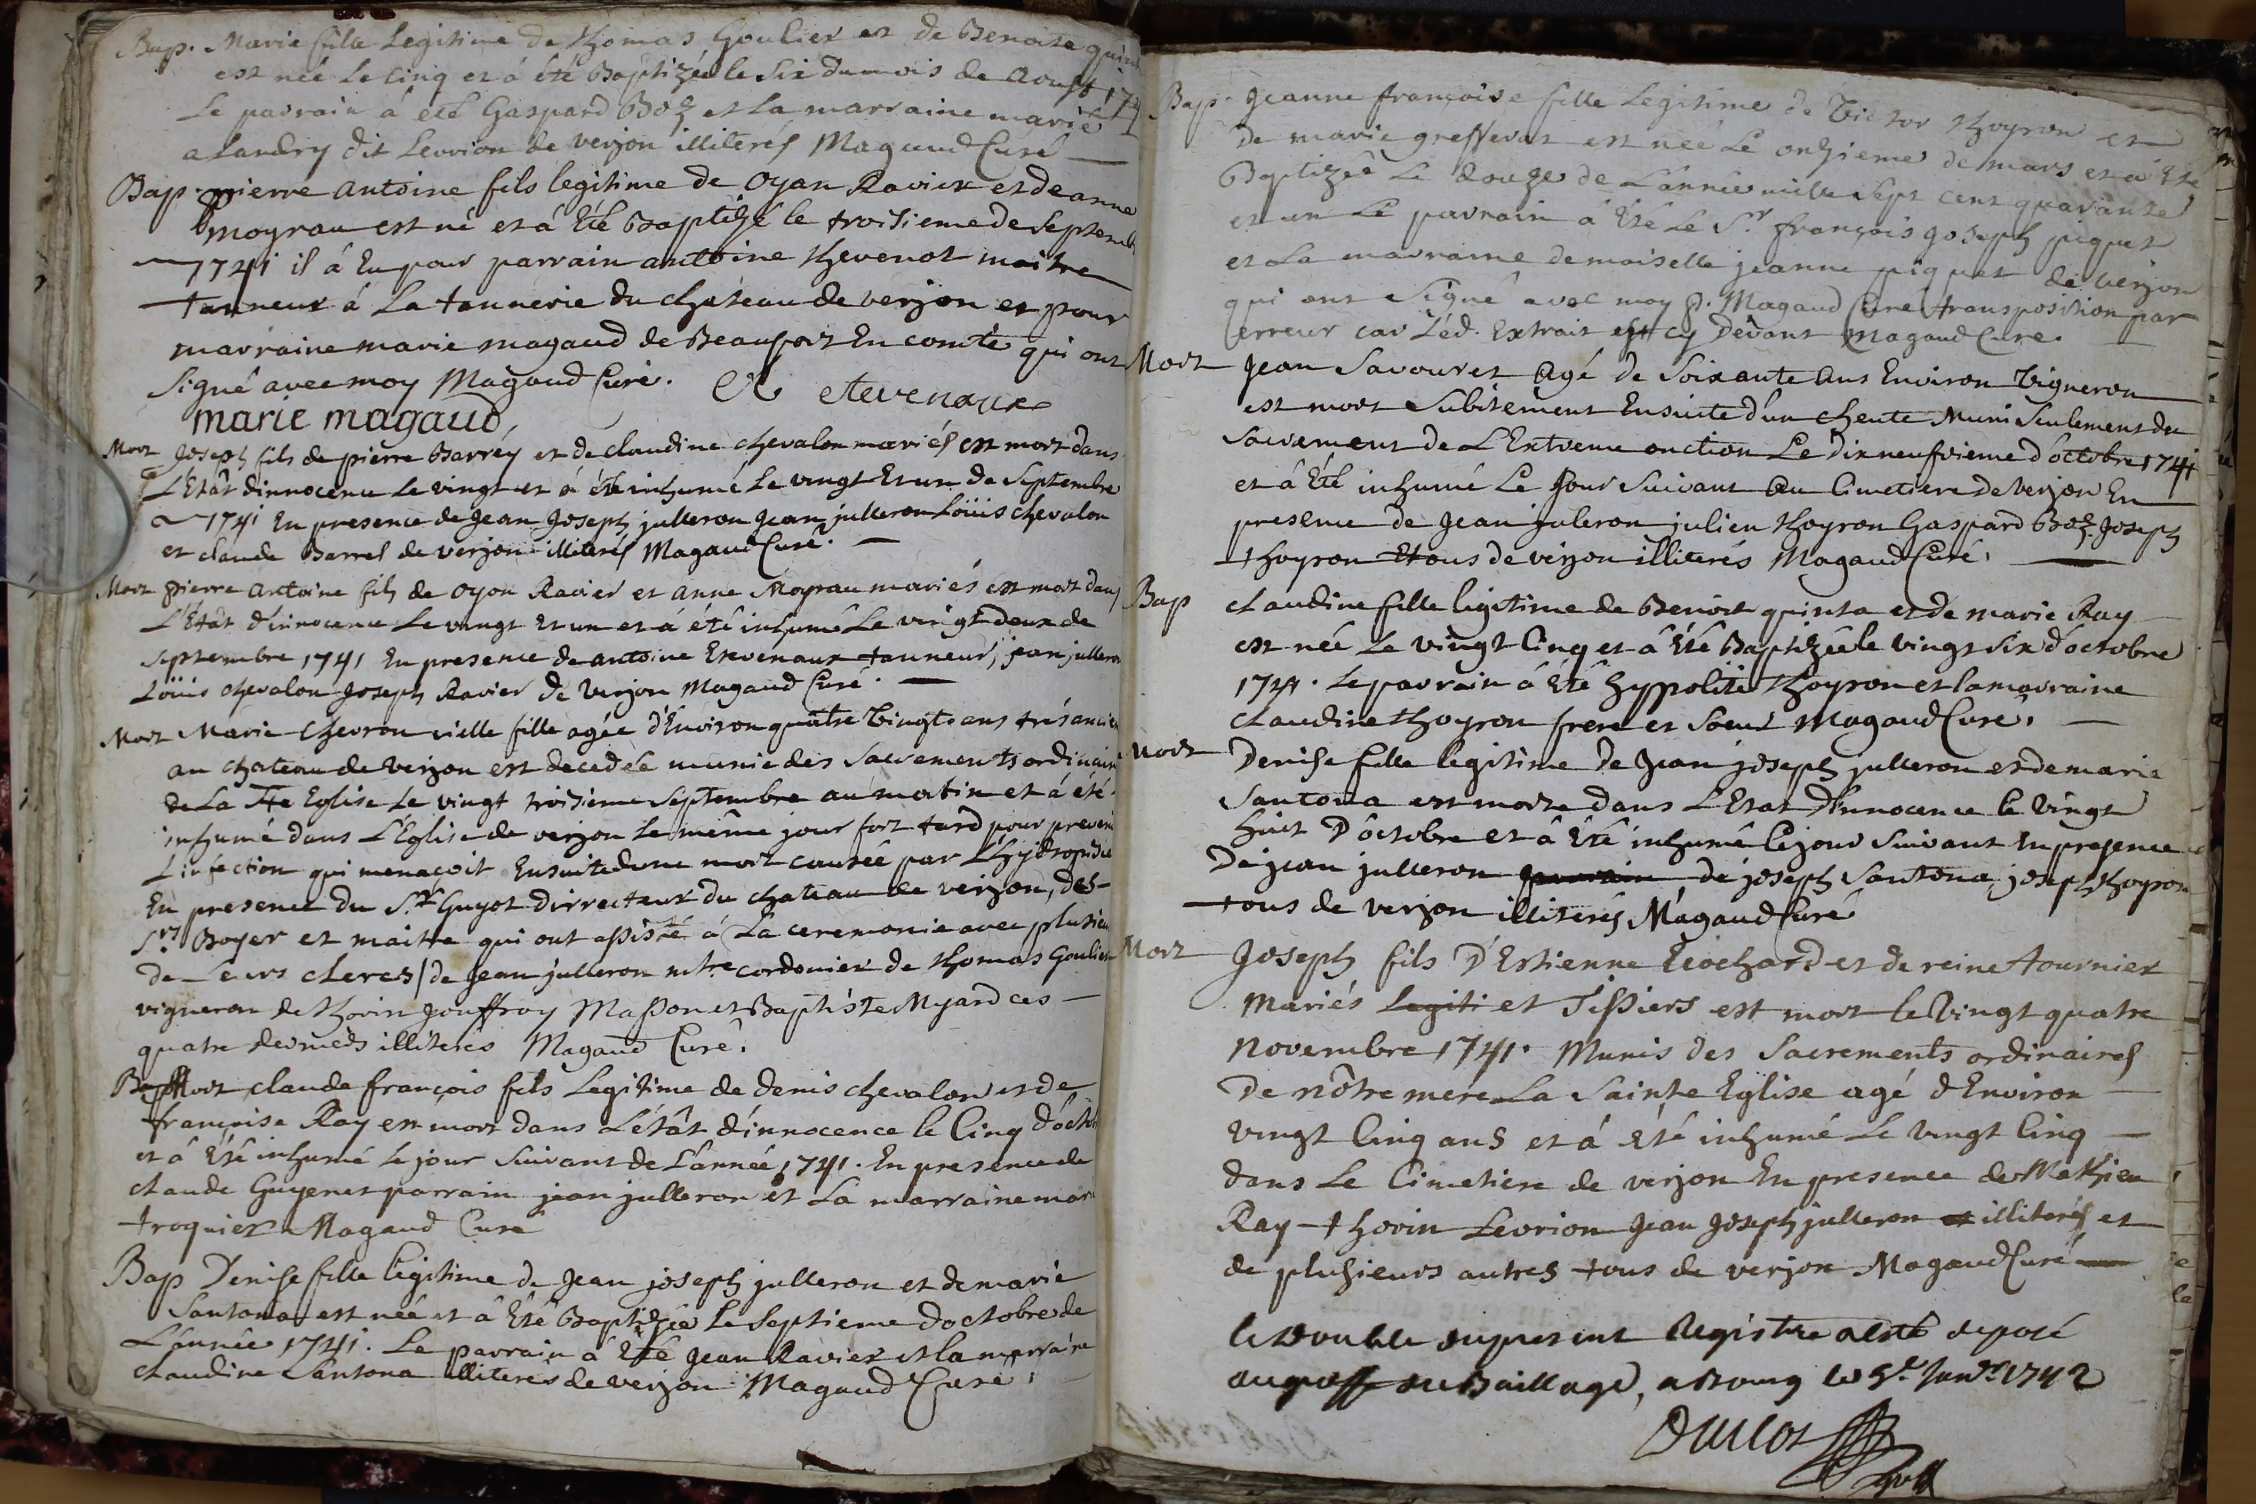 Bap. Marie fille Legitime de thomas Goulier et de Benoite
est née Le Cinq et á été Baptizée le Six du mois de Aoust 174
Le parrain á été Gaspard Boz et La marraine marie
alandry dit Levrion de verjon illiterés Magaud Curé
Bap. pierre antoine fils legitime de oyan Ravier et de anne
moyrau est né et á Eté Baptizé le troisieme de Septemb
1741 il á Eu pour parrain antoine thevenot maitre
tanneur á La tannerie du chateau de verjon et pour
marraine marie magaud de Beaufort En comté qui ont
Signé avec moy Magaud Curé. etevenaux
marie magaud
Mort Joseph fils de pierre Barréy et de claudine chevalon mariés est mort dans
L'Etât d'innocence Le vingt et á été inhumé Le vingt Et un de Septembre
1741 En presence de Jean Joseph julleron Jean julleron Loüis chevalon
et claude Barrel de verjon illiterés Magaud Curé.
Mort pierre antoine fils de oyon Ravier et anne Moyrau mariés est mort dans
L'Etât d'innocence Le vingt Et un et á été inhumé Le vingt deux de
Septembre 1741 En presence de antoine Etevenaux tanneur, jean julleron
Loüis chevalon Joseph Ravier de verjon Magaud Curé.
Mort Marie chevron vielle fille agée d'Environ quatre vingts ans trés ancien
au chateau de verjon est decedée munie des Sacrements ordinaire
de La Ste Eglise Le vingt troisieme Septembre au matin et á été
inhumé dans L'Eglise de verjon le même jour fort tard pour prevenir
L'infection qui menaçoit Ensuite dune mort causée par L'hydropisie
En presence du Sr. Guyot dirrecteur du chateau de verjon, des
Srs Boyer et maitre qui ont assisté á La ceremonie avec plusieu
de Leurs cleres / de Jean julleron mtre cordonier de thomas Goulier
vigneron de thorin Jouffroy Masson et Baptiste Myard ces
quatre derniers illiterés Magaud Curé.
Mort claude françois fils Legitime de denis chevalon et de
françoise Ray est mort dans L'état d'innocence le Cinq d'octo
et á Eté inhumé le jour Suivant de L'année 1741. En presence de
claude Guyenet parrain jean julleron et La marraine mari
troquier Magaud Curé
Bap Denise fille legitime de Jean joseph julleron et de marie
Santona est née et á Eté Baptizée Le Septieme d'octobre de
L'année 1741. Le parrain á Eté Jean Ravier et la marraine
claudine Santona illiterés de verjon Magaud Curé.
Bap. Jeanne françoise fille Legitime de victor thoyron et
de marie gresserat est née Le onzieme de mars et á Eté
Baptizée Le douze de L'année mille Sept cent quarante
et un Le parrain á Eté Le Sr. françois Joseph piquet
et La marraine demoiselle jeanne piquet de verjon
qui ont Signé avec moy p. Magaud Curé transposition par
erreur car L'éd. Extrait est cy Devant Magaud Curé.
Mort Jean Savouret agé de Soixante ans Environ vigneron
est mort Subitement Ensuite d'un cheute Muni Seulement du
Sacrement de L'Extreme onction Le Dix neufvieme d'octobre 1741
et á Eté inhumé Le Jour Suivant au Cimetiere de Verjon En
presence de Jean juleron julien thoyron Gaspard Boz. Joseph
thoyron Et tous de verjon illiterés Magaud Curé.
Bap claudine fille legitime de Benoit quinta et de marie Ray
est née Le vingt Cinq et á Eté Baptizée le vingt Six d'octobre
1741. Le parrain á Eté hyppolite thoyron et la marraine
claudine thoyron frere et Soeur Magaud Curé.
Mort Denise fille legitime de Jean joseph julleron et de marie
Santona est morte dans L'Etat d'Innocence le vingt
huit D'octobre et á Eté inhumé le jour Suivant En presence
De jean julleron de joseph Santona, joseph thoyron
tous de verjon illiterés Magaud Curé
Mort Joseph fils D'Estienne Rochard et de reine tournier
mariés Legiti et Tissiers est mort le Vingt quatre
Novembre 1741. Munis des Sacrements ordinaires
De nôtre mere La Sainte Eglise agé d'Environ
vingt Cinq ans et á Eté inhumé Le vingt Cinq
dans Le Cimetiere de verjon En presence de Mathieu
Ray thorin Levrion Jean Joseph julleron et illiterés et
de plusieurs autres tous de verjon Magaud Curé
le double du present Registre a esté deposé
au greffe du Baillage, a Bourg le 5e Janvr 1742
Duclos